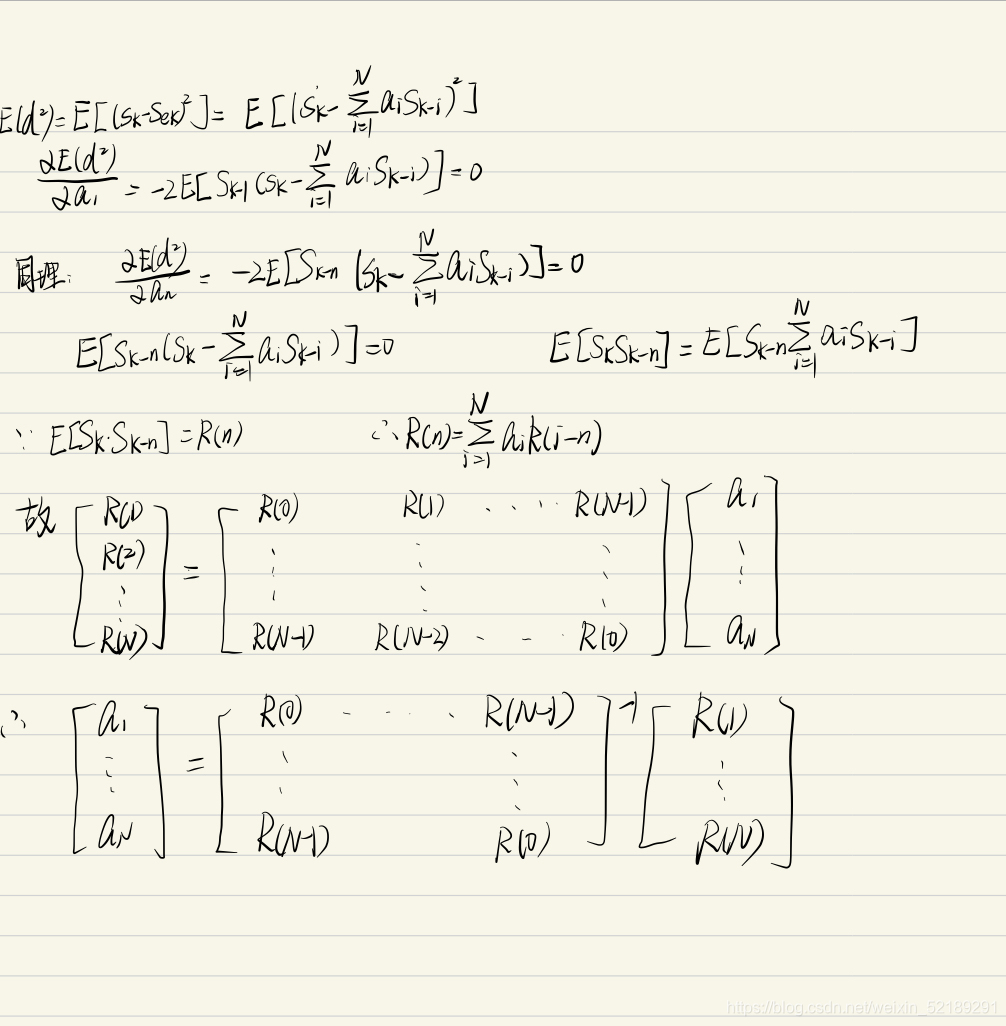 E(d²)=E[(Sk-Sek)²]= E[(Sk-∑_{i=1}^{N} aiSk-i)²]
∂E(d²)/∂a₁ = -2E[Sk-1(Sk-∑_{i=1}^{N} aiSk-i)]=0
同理: ∂E(d²)/∂an = -2E[Sk-n (Sk-∑_{i=1}^{N} aiSk-i)]=0
E[Sk-n(Sk-∑_{i=1}^{N} aiSk-i)]=0 E[SkSk-n]=E[Sk-n∑_{i=1}^{N} aiSk-i]
∵ E[Sk·Sk-n]=R(n) ∴ R(n)=∑_{i=1}^{N} aiR(i-n)
故 [R(1) R(2) ⋮ R(N)] = [R(0) R(1) ···· R(N-1) ⋮ ⋮ ⋮ R(N-1) R(N-2) ··· R(0)] [a₁ ⋮ aN]
∴ [a₁ ⋮ aN] = [R(0) ···· R(N-1) ⋮ ⋮ R(N-1) R(0)]⁻¹ [R(1) ⋮ R(N)]
https://blog.csdn.net/weixin_52189291